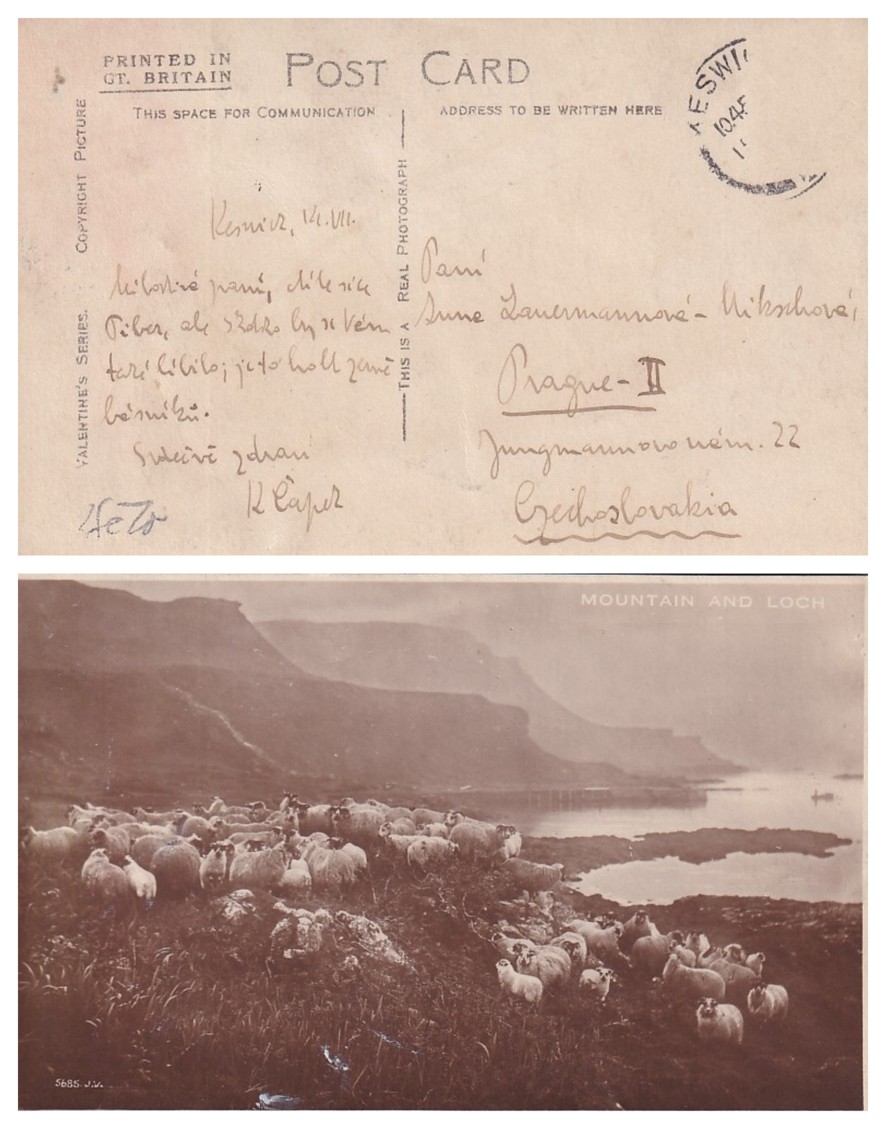 PRINTED IN
GT. BRITAIN
POST CARD
THIS SPACE FOR COMMUNICATION
ADDRESS TO BE WRITTEN HERE
VALENTINE'S SERIES. COPYRIGHT PICTURE
THIS IS A REAL PHOTOGRAPH
KESWI
10.45
Keswick, 14.VII.
Milostivá paní,
Tibet, ale stokrát by se Vám
také líbilo; je to holt země
básníků.
Srdečně zdraví
K Čapek
Paní
Anna Lauermannová-Mikschová,
Prague-II
Jungmannovo nám. 22
Czechoslovakia
MOUNTAIN AND LOCH
5685. J.V.